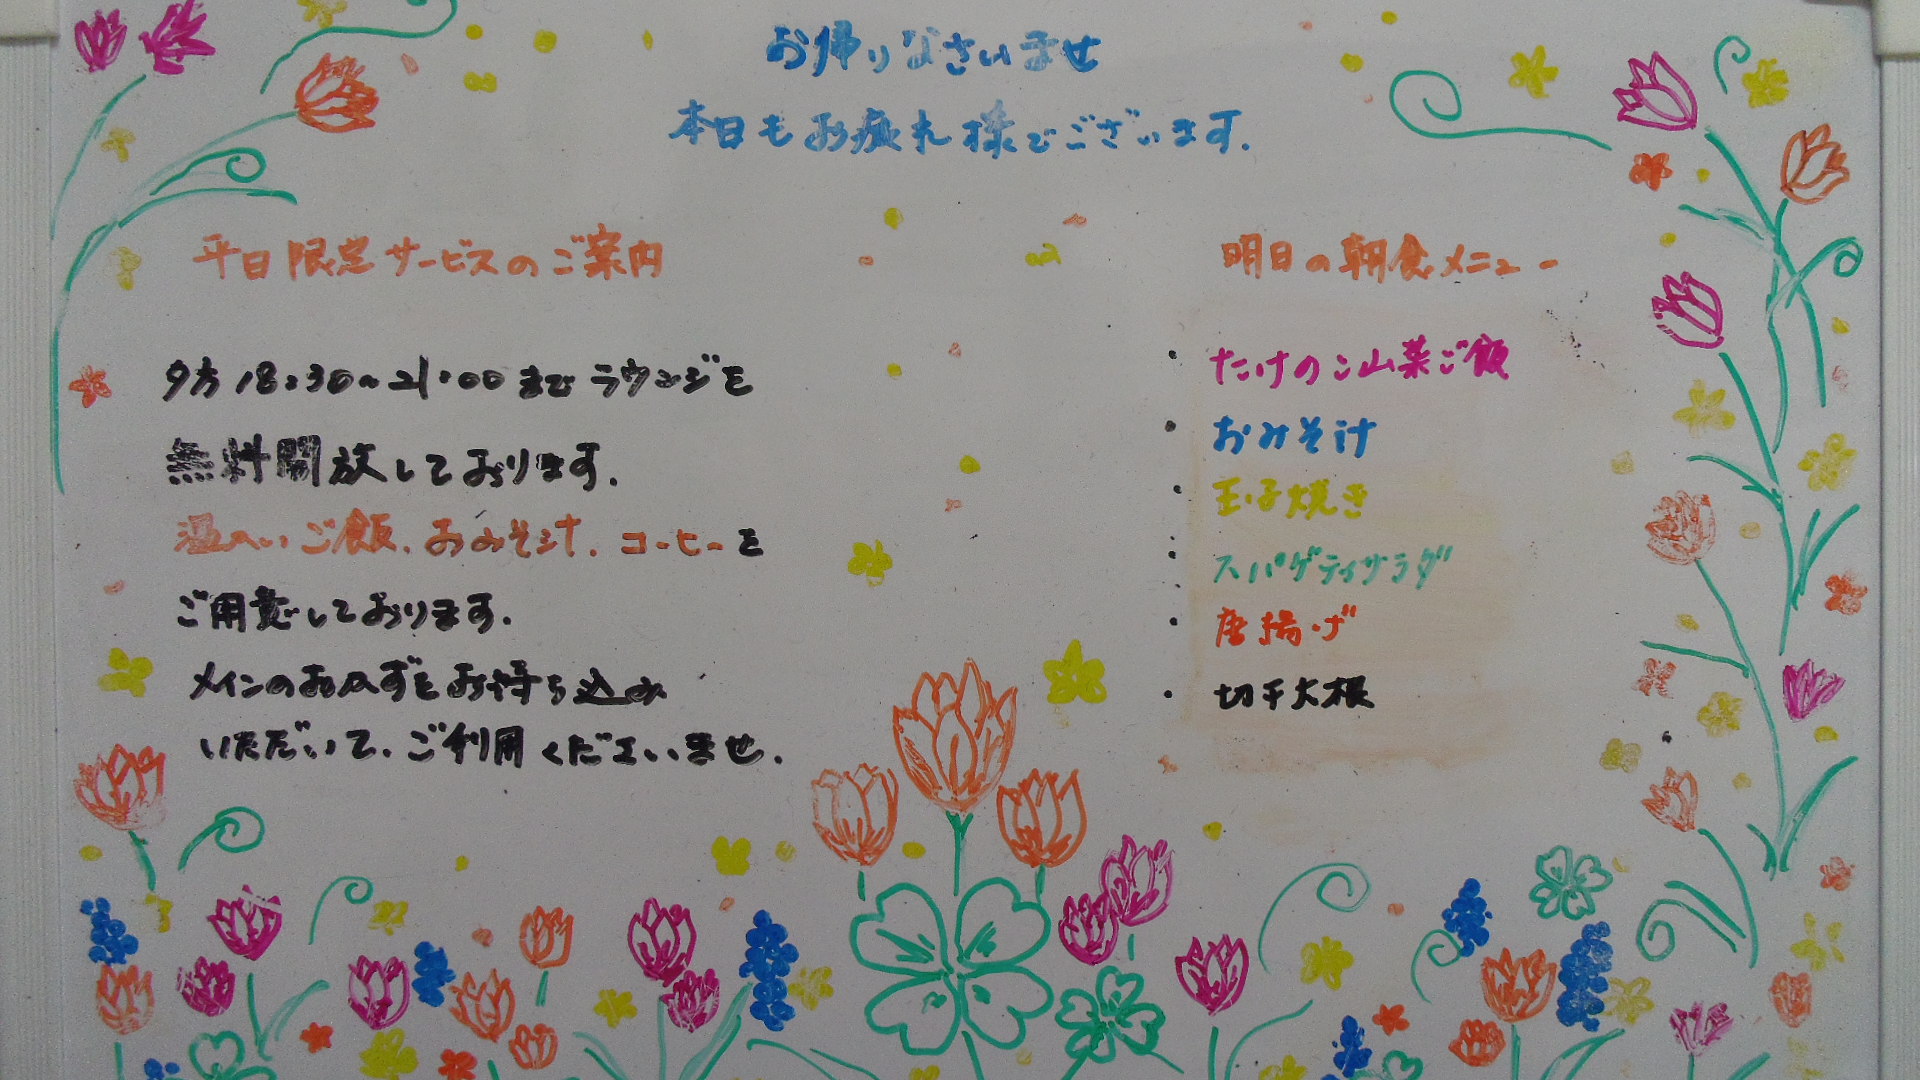 お帰りなさいませ
本日もお疲れ様でございます.
平日限定サービスのご案内
夕方18:30~21:00までラウンジを
無料開放しております.
温かいご飯.おみそ汁.コーヒーを
ご用意しております.
メインのおかずをお持ち込み
いただいて.ご利用くださいませ.
明日の朝食メニュー
・たけのこ山菜ご飯
・おみそ汁
・玉子焼き
・スパゲティサラダ
・唐揚げ
・切干大根